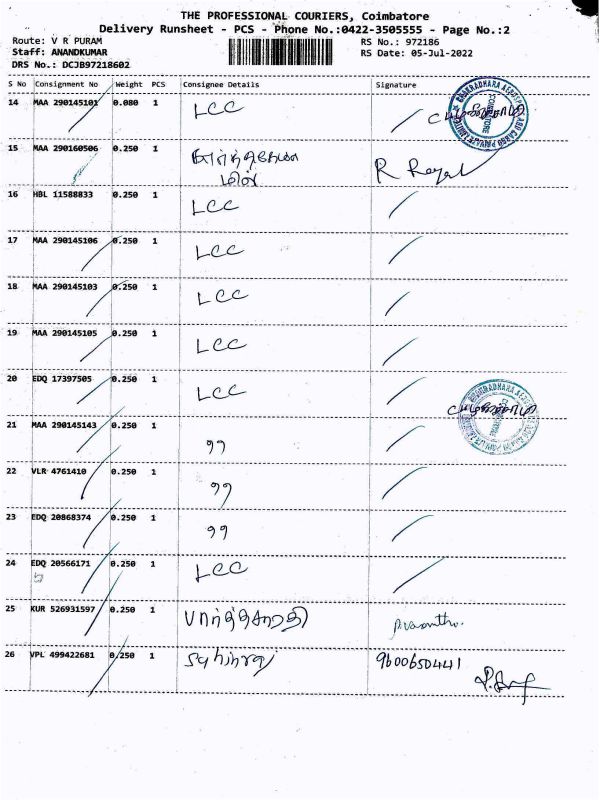 THE PROFESSIONAL COURIERS, Coimbatore
Delivery Runsheet - PCS - Phone No.:0422-3505555 - Page No.:2
Route: V R PURAM RS No.: 972186
Staff: ANANDKUMAR RS Date: 05-Jul-2022
DRS No.: DCJB97218602
S No Consignment No Weight PCS Consignee Details Signature
14 MAA 290145101 0.080 1 LCC
15 MAA 290160506 0.250 1
R Rayal
16 HBL 11588833 0.250 1 LCC
17 MAA 290145106 0.250 1 LCC
18 MAA 290145103 0.250 1 LCC
19 MAA 290145105 0.250 1 LCC
20 EDQ 17397505 0.250 1 LCC
21 MAA 290145143 0.250 1 99
22 VLR 4761410 0.250 1 99
23 EDQ 20868374 0.250 1 99
24 EDQ 20566171 0.250 1 LCC
25 KUR 526931597 0.250 1 பார்த்தசாரதி
26 VPL 499422681 0.250 1 9600650441